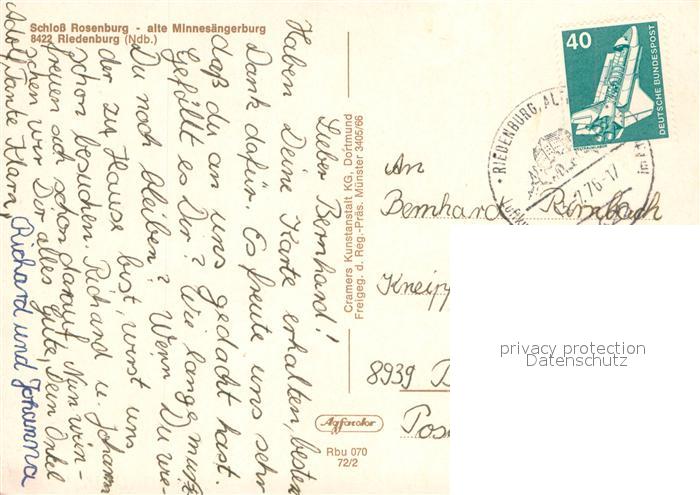 Schloß Rosenburg - alte Minnesängerburg
8422 Riedenburg (Ndb.)
Lieber Bernhard!
Haben Deine Karte erhalten, besten
Dank dafür. Es freute uns sehr
daß du an uns gedacht hast.
Gefällt es Dir? Wie lange mußt
Du noch bleiben? Wenn Du wie-
der zu Hause bist, wirst uns
schon besuchen. Richard u. Johanna
freuen sich schon darauf. Nun wün-
schen wir Dir alles Gute, Dein Onkel
Adolf, Tante Klara,
Richard und Johanna
Cramers Kunstanstalt KG, Dortmund
Freigeg. d. Reg.-Präs. Münster 3405/66
Agfacolor
Rbu 070
72/2
40
DEUTSCHE BUNDESPOST
RIEDENBURG, AL
7.76-17
An
Bernhard Rimbach
Kneipp
8939 B
Pos
privacy protection
Datenschutz